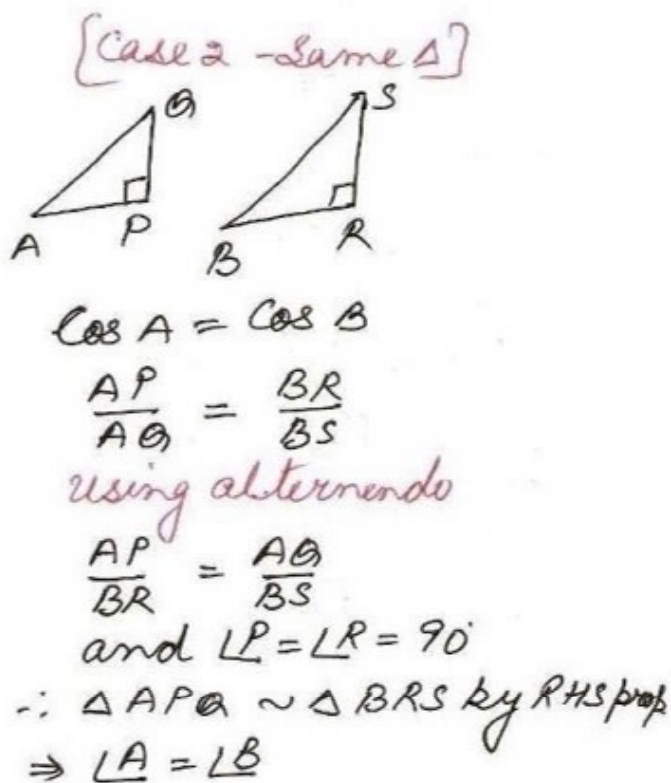 [Case 2 - Same Δ]
Q S
A P B R
Cos A = Cos B
AP/AQ = BR/BS
using alternendo
AP/BR = AQ/BS
and ∠P = ∠R = 90°
∴ Δ APQ ~ Δ BRS by RHS prop
⇒ ∠A = ∠B